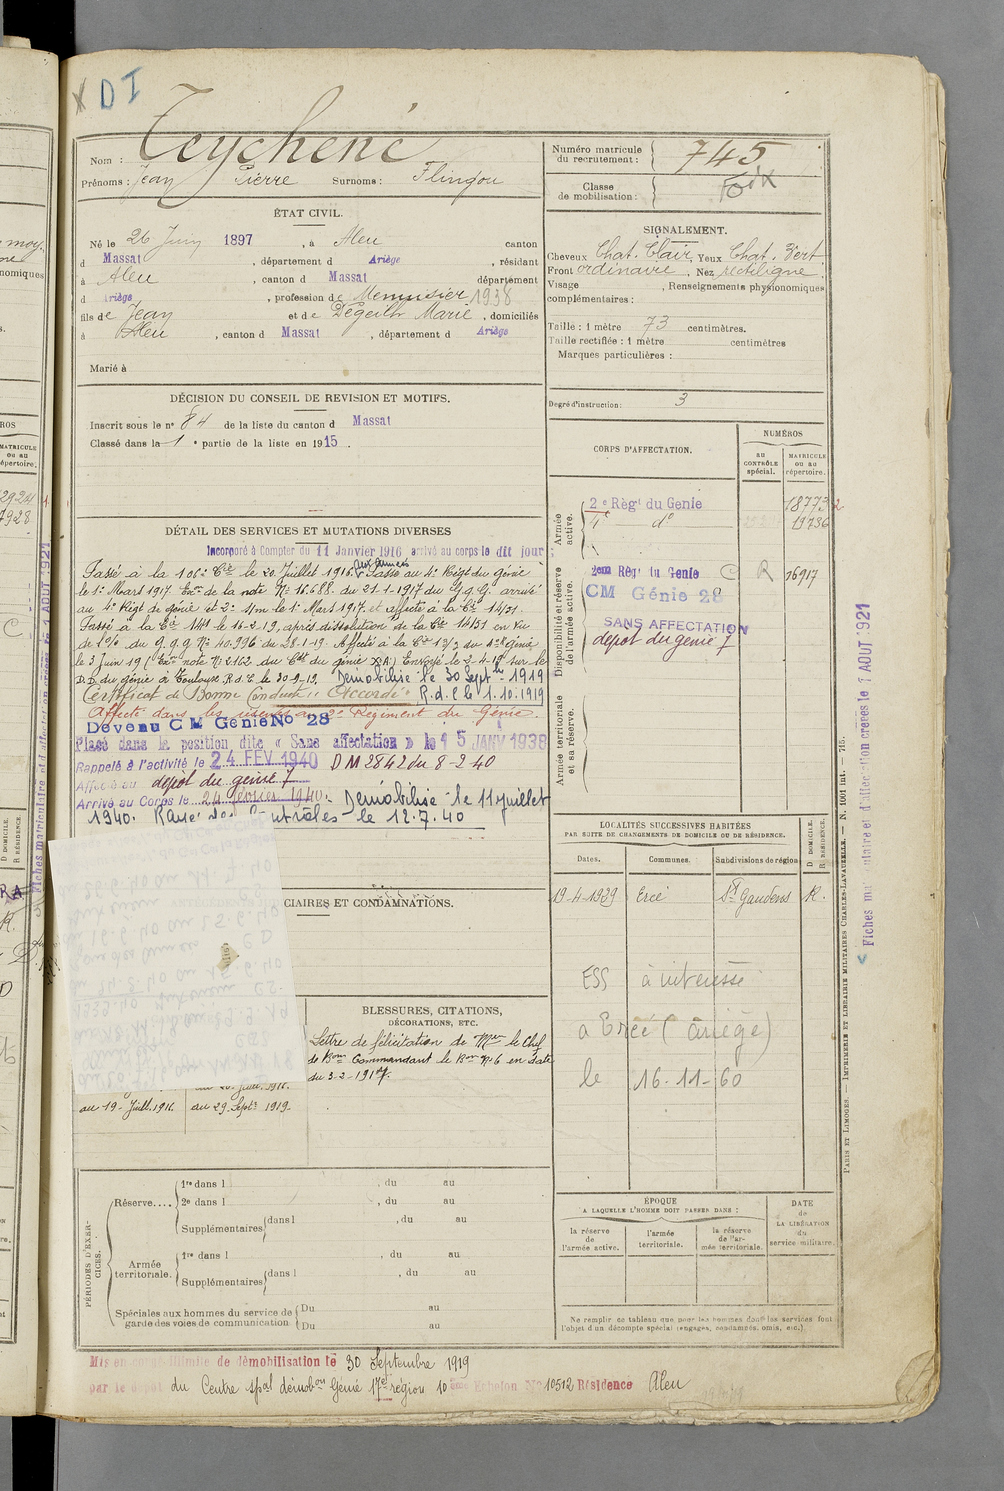 X D I
Nom : Teychené
Prénoms : Jean Pierre Surnoms : Flingou
Numéro matricule du recrutement : 745
Classe de mobilisation :
ÉTAT CIVIL.
Né le 26 Juin 1897, à Aleu canton
d Massat, département d Ariège, résidant
à Aleu, canton d Massat département
d Ariège, profession de Menuisier 1938
fils de Jean et de Dégeilh Marie, domiciliés
à Aleu, canton d Massat, département d Ariège
Marié à
SIGNALEMENT.
Cheveux Chat. Clair, Yeux Chat. Vert
Front ordinaire, Nez rectiligne.
Visage , Renseignements physionomiques
complémentaires :
Taille : 1 mètre 73 centimètres.
Taille rectifiée : 1 mètre centimètres
Marques particulières :
Degré d'instruction : 3
DÉCISION DU CONSEIL DE REVISION ET MOTIFS.
Inscrit sous le n° 84 de la liste du canton d Massat
Classé dans la 1e partie de la liste en 1915.
DÉTAIL DES SERVICES ET MUTATIONS DIVERSES
Incorporé à Compter du 11 Janvier 1916 arrivé au corps le dit jour
aux armées
Passé à la 106e Cie le 20 Juillet 1916. Passé au 4e Régt du génie
le 1er Mars 1917. Exon de la note No 16.688 du 21-1-1917 du G.q.G. arrivé
au 4e Régt de génie et 2e s/m le 1er Mars 1917 et affecté à la Cie 14/51.
Passé à la Cie 14/1 le 16-2-19, après dissolution de la Cie 14/51 en vu
du G.q.G No 40.996 du 28-1-19. Affecté à la Cie 13/3 du 4e Génie
le 3 Juin 19 (Exon note No 2162 du Cdt du génie X.A.) Envoyé le 2-4-19 sur le
D.D. du génie à Toulouse R.d.C. le 30-9-19. Démobilisé le 30 Septbre 1919
Certificat de Bonne Conduite "Accordé" R.d.C le 1.10.1919
Affecté dans les réserves au 2e Régiment du Génie.
Devenu C M Génie No 28
Placé dans la position dite « Sans affectation » le 15 JANV 1938
Rappelé à l'activité le 24 FEV 1940 DM 2842 du 8-2-40
Affecté au dépot du génie 7
Arrivé au Corps le 24 février 1940. Démobilisé le 11 juillet
1940. Rayé des Contrôles le 12.7.40
CORPS D'AFFECTATION.
NUMÉROS
AU CONTRÔLE spécial.
MATRICULE ou au répertoire.
Armée active.
2e Régt du Genie 18773
4e do 19736
Disponibilité et réserve de l'armée active.
2eme Régt du Genie C R 16917
CM Génie 28
SANS AFFECTATION
dépot du génie 7
Armée territoriale et sa réserve.
LOCALITÉS SUCCESSIVES HABITÉES
PAR SUITE DE CHANGEMENTS DE DOMICILE OU DE RÉSIDENCE.
Dates. Communes. Subdivisions de région
D DOMICILE. R RÉSIDENCE.
19-4-1939 Ercé St Gaudens R.
ESS à intéressé
à Ercé (Ariège)
le 16-11-60
CIAIRES ET CONDAMNATIONS.
BLESSURES, CITATIONS,
DÉCORATIONS, ETC.
Lettre de félicitation de Mr le Chef
de Bon Commandant le Bon No 6 en date
du 3-2-1917.
au 19-Juill. 1916. au 29-Septe 1919-
PÉRIODES D'EXERCICES.
Réserve.... 1re dans l , du au
2e dans l , du au
Supplémentaires dans l , du au
Armée territoriale. 1re dans l , du au
Supplémentaires dans l , du au
Spéciales aux hommes du service de garde des voies de communication. Du au
Du au
ÉPOQUE
A LAQUELLE L'HOMME DOIT PASSER DANS :
la réserve de l'armée active.
l'armée territoriale.
la réserve de l'armée territoriale.
DATE de LA LIBÉRATION du service militaire.
Ne remplir ce tableau que pour les hommes dont les services font
l'objet d'un décompte spécial (engagés, condamnés, omis, etc.).
Mis en congé illimité de démobilisation le 30 Septembre 1919
par le dépot du Centre spal démobon Génie 17e région 10ème Echelon No 10512 Résidence Aleu
PARIS ET LIMOGES. — IMPRIMERIE ET LIBRAIRIE MILITAIRES CHARLES-LAVAUZELLE. — N. 1001 int. — 715.
Fiches matriculaire et d'affectation créées le 1 AOUT 1921